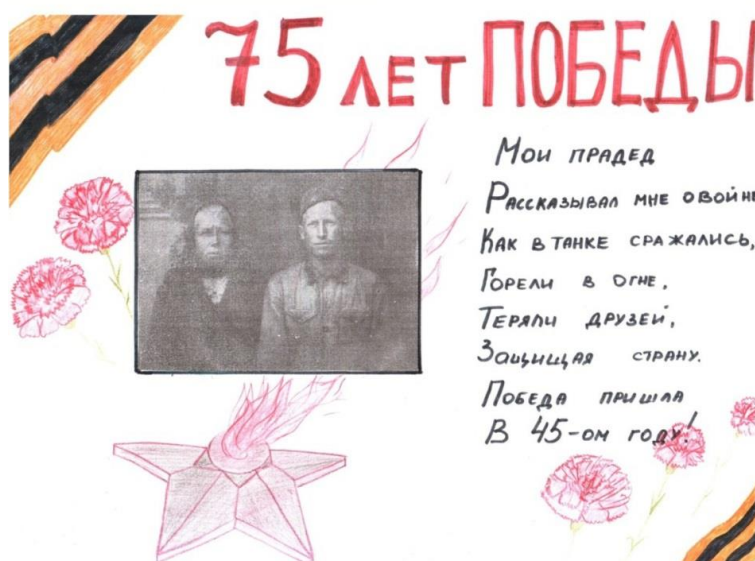 75 ЛЕТ ПОБЕДЫ
Мои ПРАДЕД
РАССКАЗЫВАЛ МНЕ О ВОЙНЕ
КАК В ТАНКЕ СРАЖАЛИСЬ,
ГОРЕЛИ В ОГНЕ,
ТЕРЯЛИ ДРУЗЕЙ,
ЗАЩИЩАЯ СТРАНУ.
ПОБЕДА ПРИШЛА
В 45-ОМ ГОДУ!